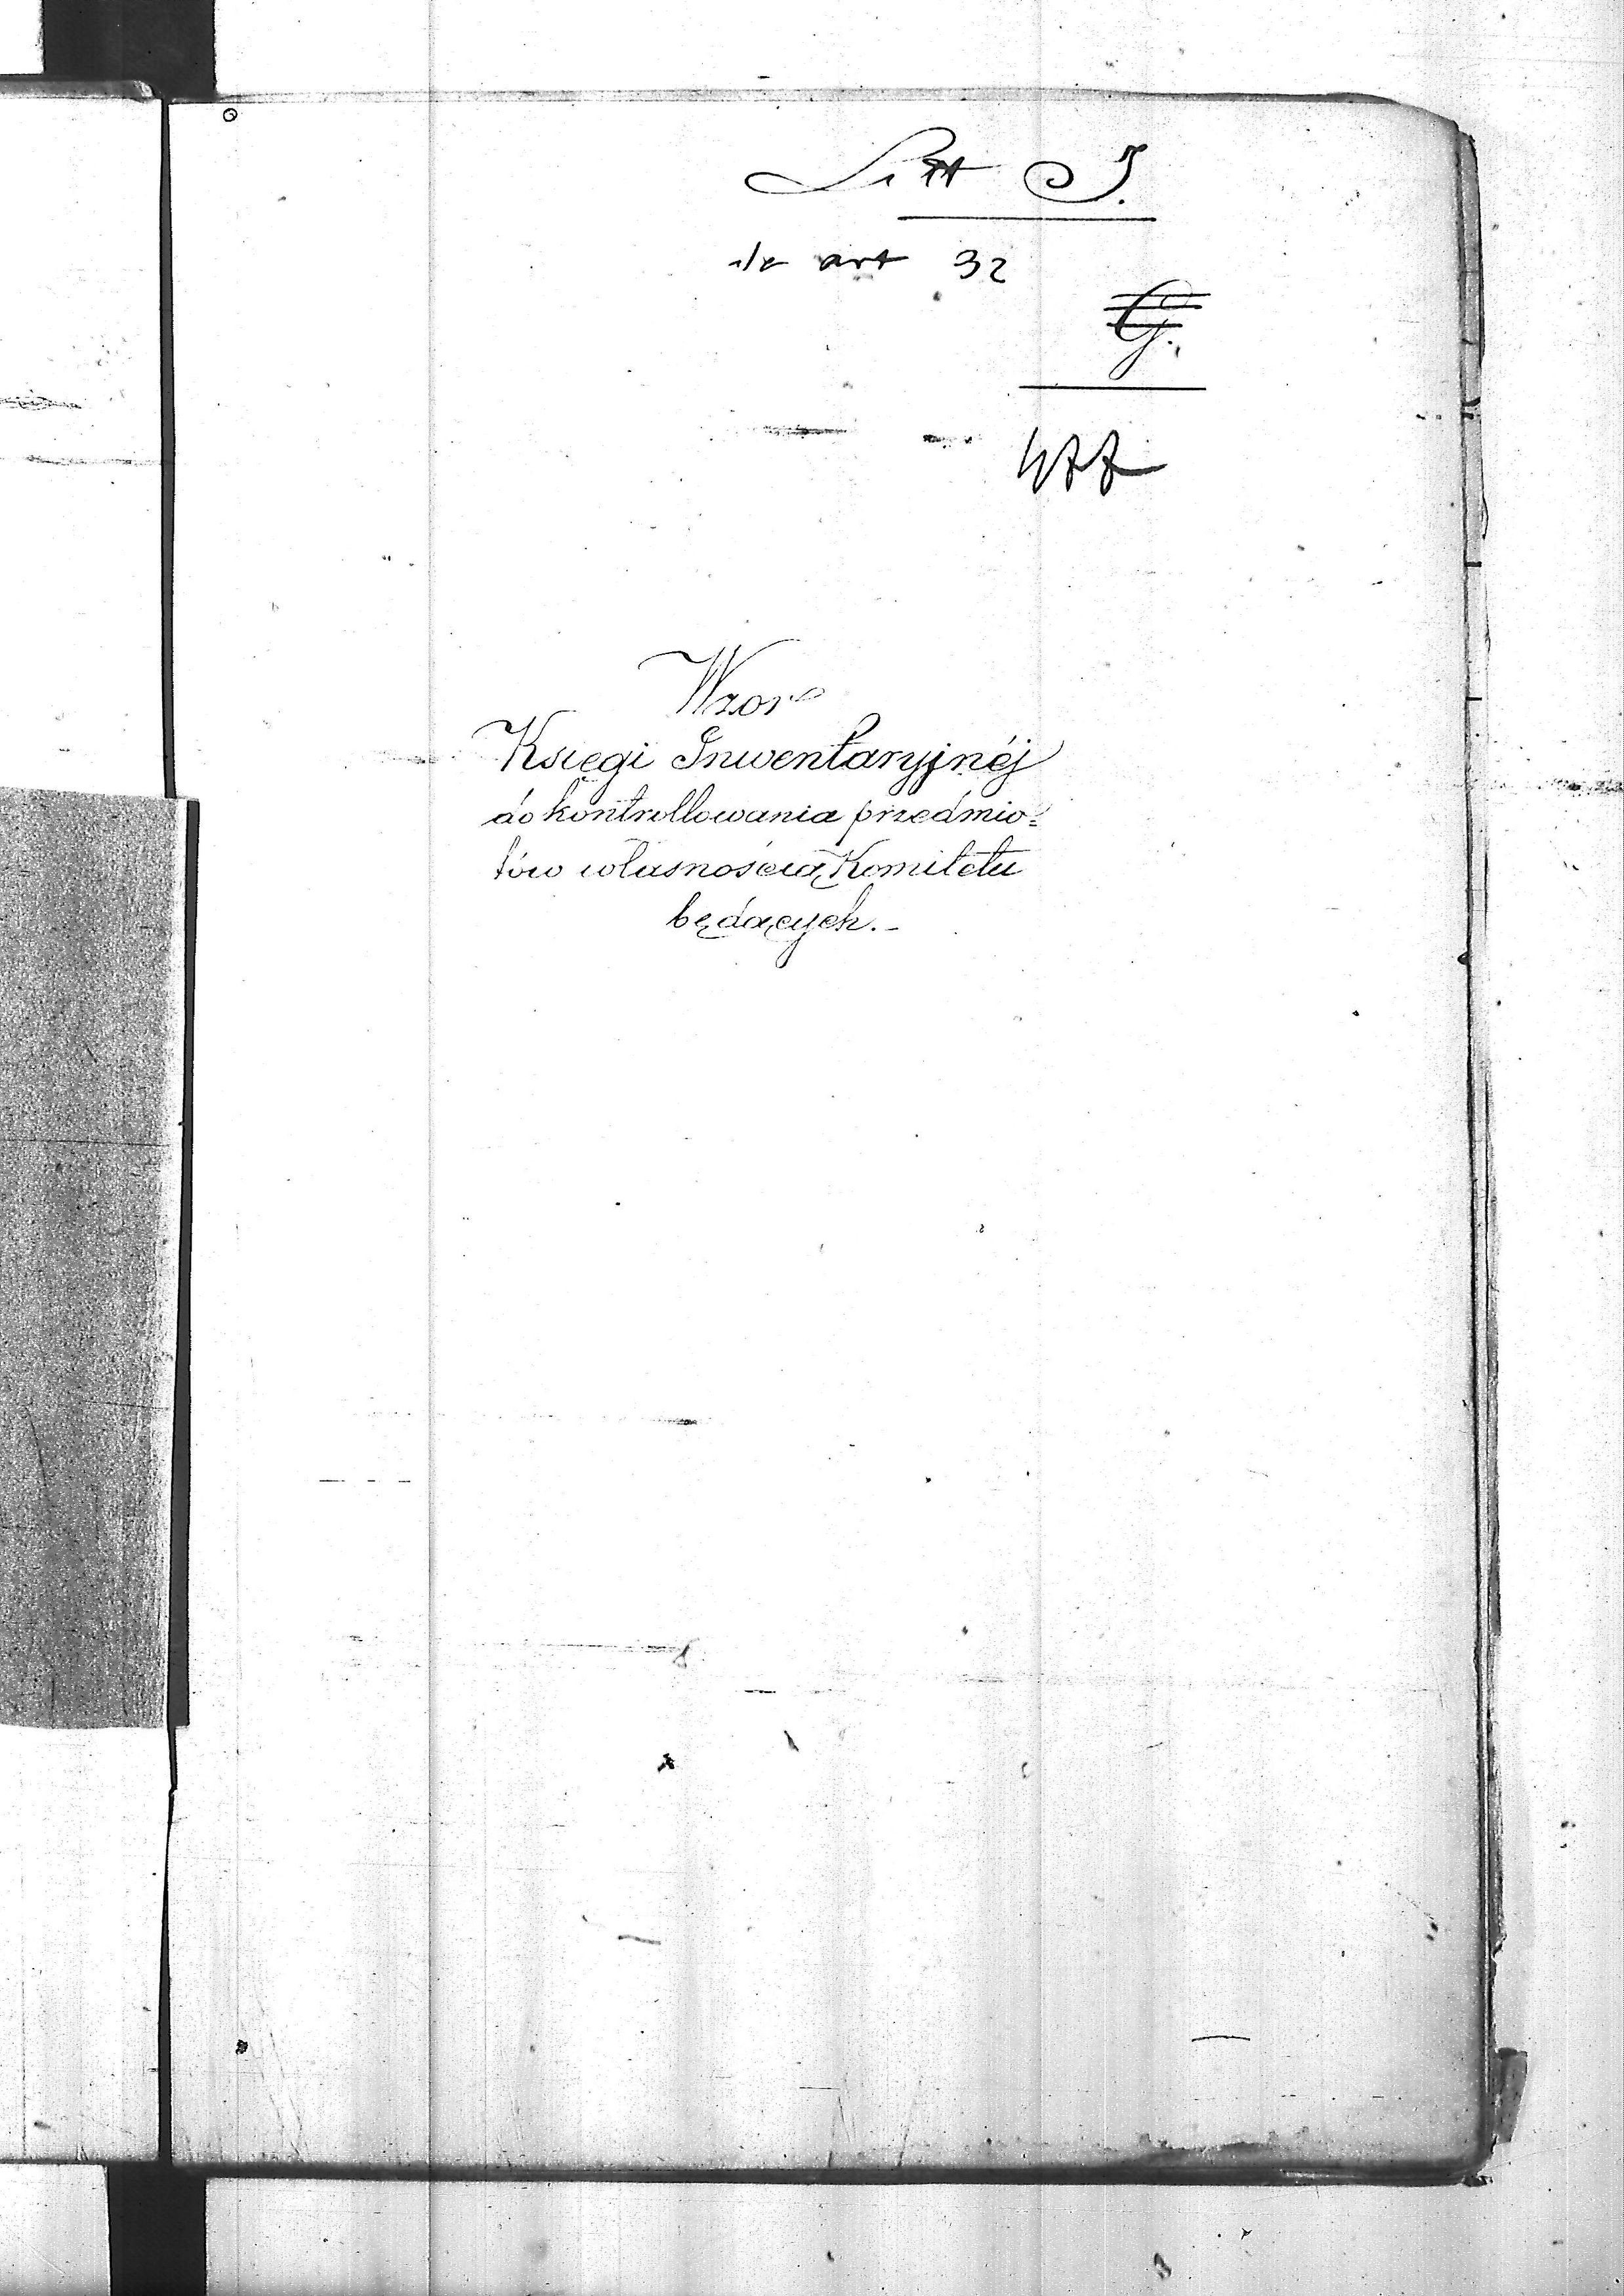 Litt J.
do art 32
G.
477
Wzor
Księgi Inwentaryjnéj
do kontrollowania przedmio=
tów własnością Komitetu
będących.-